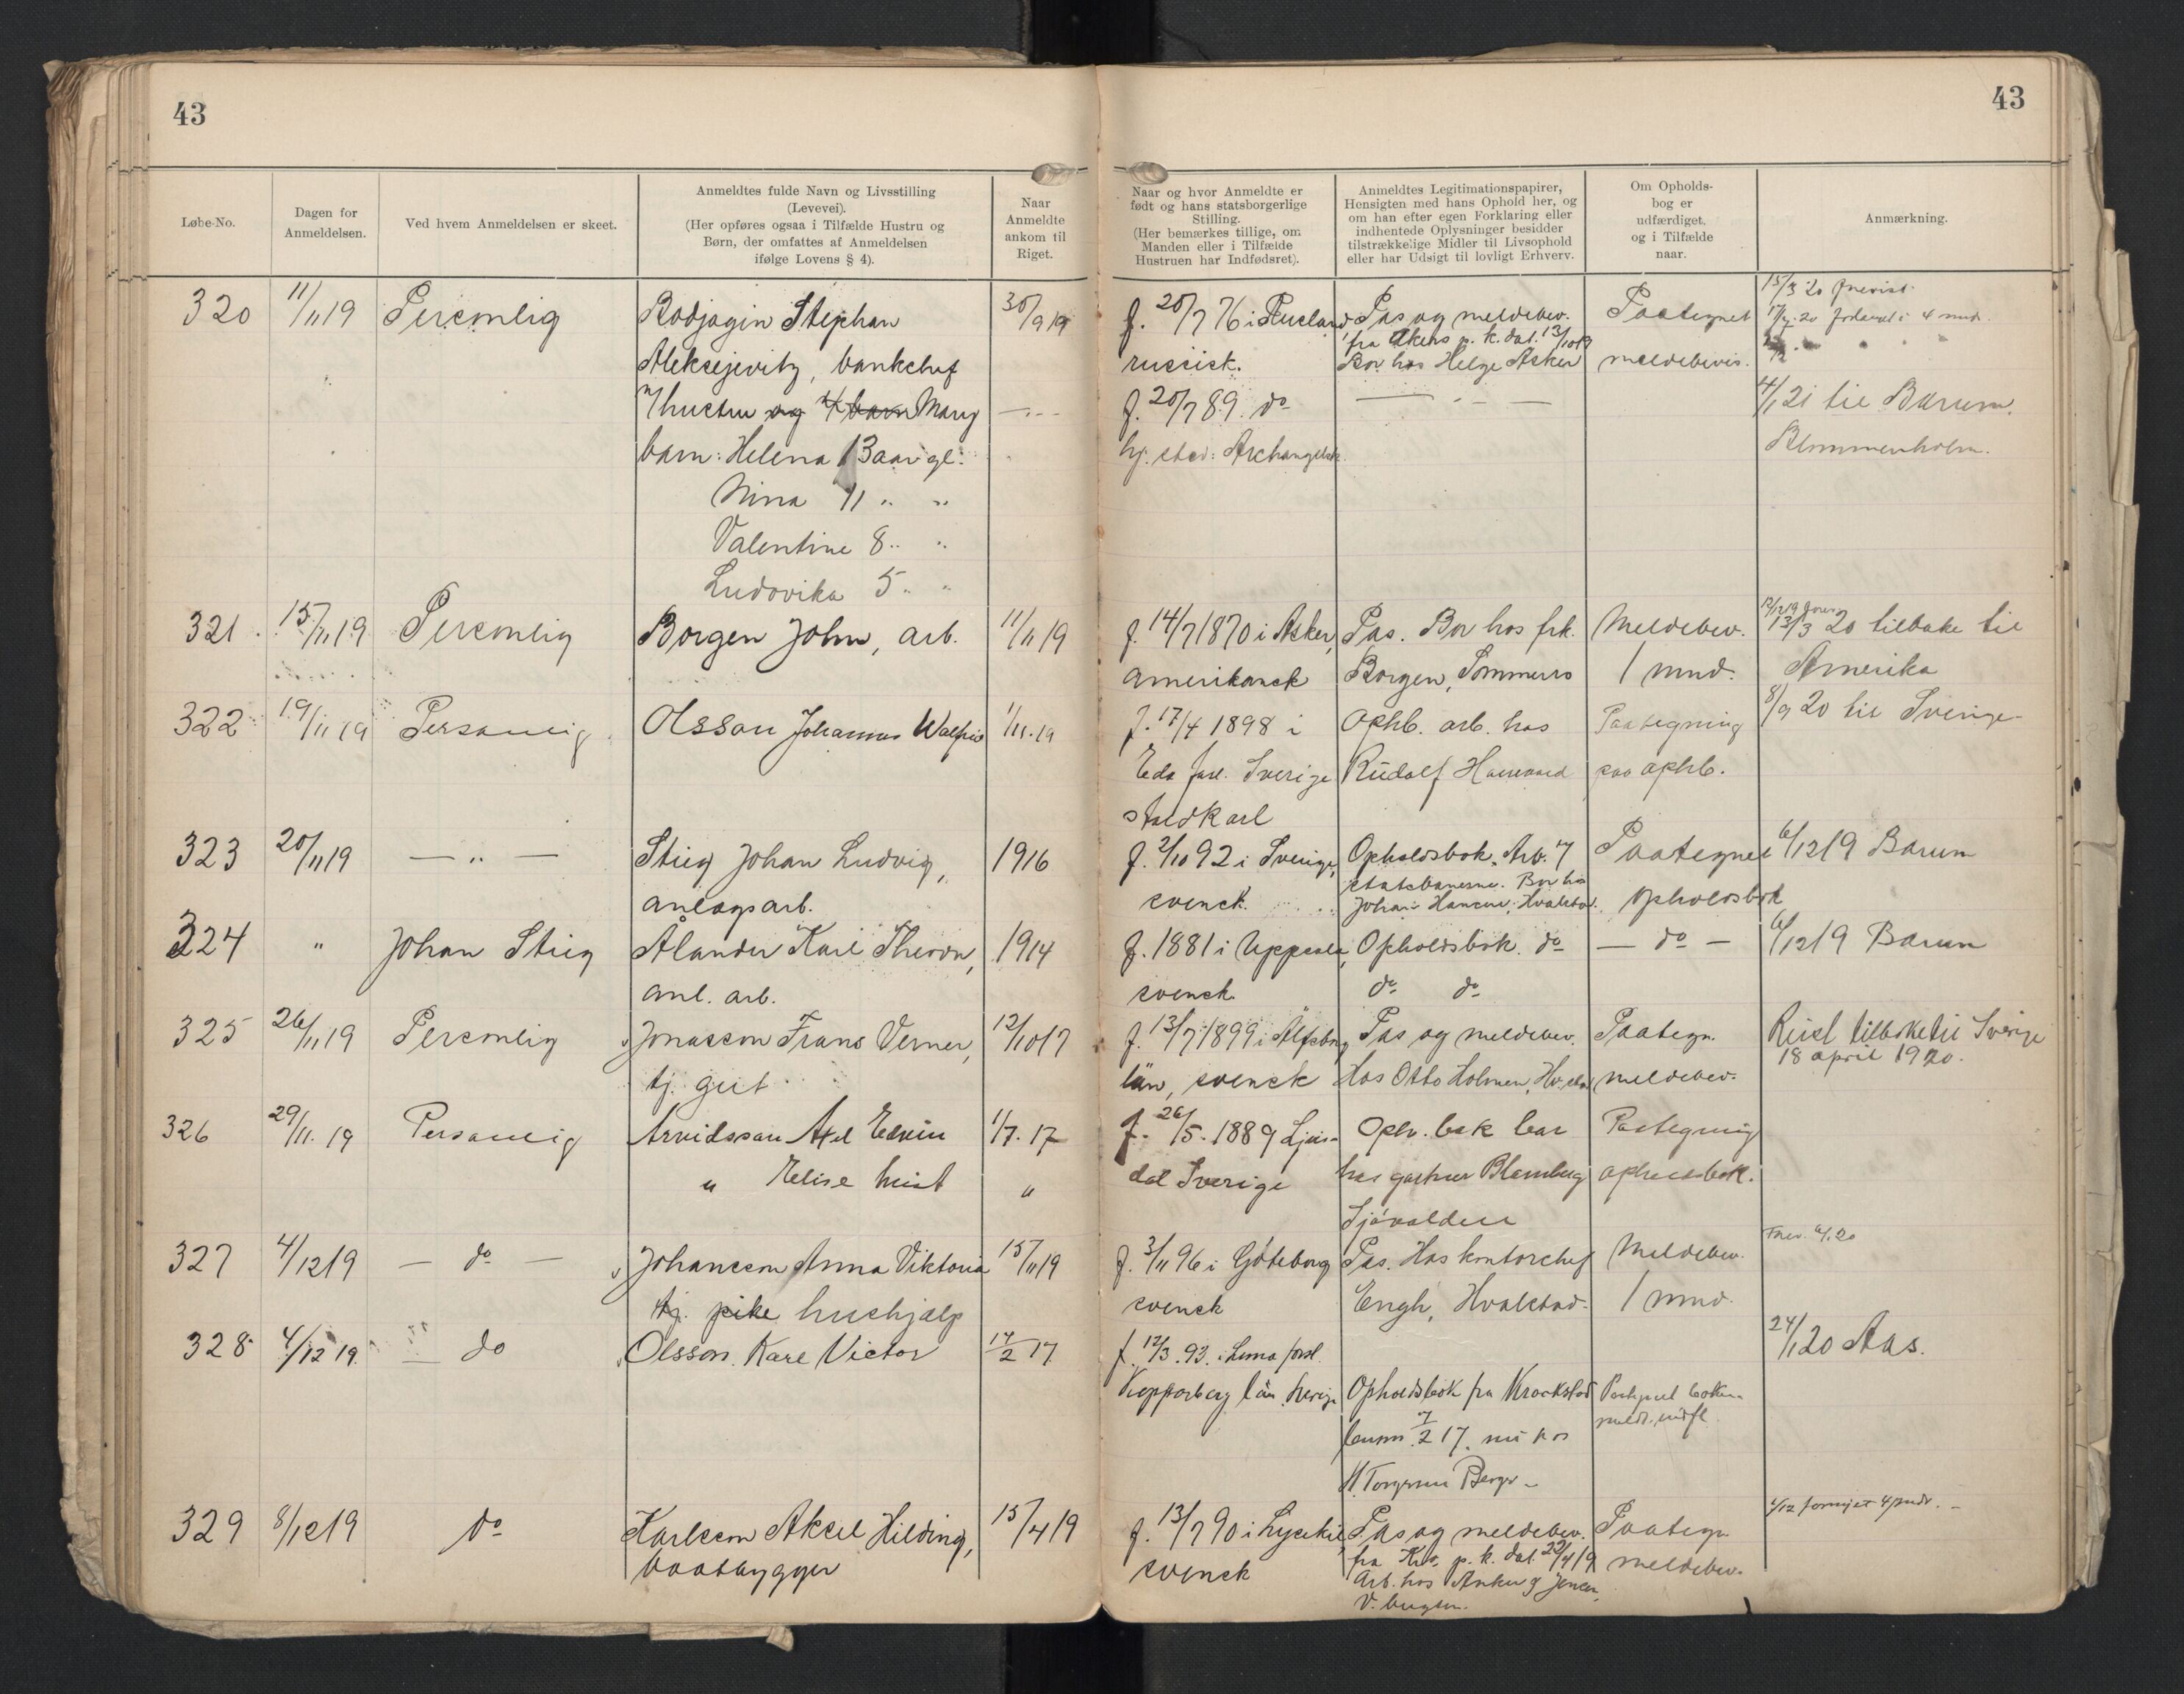 43
43
Løbe-No.
Dagen for
Anmeldelsen.
Ved hvem Anmeldelsen er skeet.
Anmeldtes fulde Navn og Livsstilling
(Levevei).
(Her opføres ogsaa i Tilfælde Hustru og
Børn, der omfattes af Anmeldelsen
ifølge Lovens § 4).
Naar
Anmeldte
ankom til
Riget.
Naar og hvor Anmeldte er
født og hans statsborgerlige
Stilling.
(Her bemærkes tillige, om
Manden eller i Tilfælde
Hustruen har Indfødsret).
Anmeldtes Legitimationspapirer,
Hensigten med hans Ophold her, og
om han efter egen Forklaring eller
indhentede Oplysninger besidder
tilstrækkelige Midler til Livsophold
eller har Udsigt til lovligt Erhverv.
Om Opholds-
bog er
udfærdiget,
og i Tilfælde
naar.
Anmærkning.
320 11/11 19 Personlig Rodjagin Stephan 30/9 19 f. 20/7 76 i Rusland Pas og meldebev. Paategnet 15/3 20
fra Akers p. k. dat. 13/10 19 20 4 mnd.
Aleksejevitz, bankchef russisk. Bor hos Helge Asker meldebevis.
m/hustru og 4 barn Mary — " — f. 20/7 89. do — " — 4/1 21 til Bærum,
barn: Helena 13 aar gl. hj. sted: Archangelsk Blommenholm.
Nina 11 " "
Valentine 8 " "
Ludovika 5 " "
321. 15/11 19 Personlig Borgen John, arb. 11/11 19 f. 14/7 1870 i Asker, Pas. Bor hos frk. Meldebev. 13/3 20 tilbake til
amerikansk Borgen, Sommerro 1 mnd. Amerika
322 19/11 19 Personlig Olsson Johannes Walfrid 1/11.19 f. 17/4 1898 i Ophb. arb. hos Paategning 8/9 20 til Sverige
Eda Sverige Rudolf paa ophb.
323 20/11 19 — " — Stieg Johan Ludvig, 1916 f. 2/10 92 i Sverige, Opholdsbok. Arb. v/ Paategnet 6/12 19 Bærum
statsbanerne. Bor hos
anlægsarb. svensk. Johan Hansen, Hvalstad. opholdsbok
324 " Johan Stieg Ålander Karl 1914 f. 1881 i Uppsala, Opholdsbok. do — do — 6/12 19 Bærum
anl. arb. svensk. do do
325 26/11 19 Personlig Jonasson Frans Verner, 12/10 17 f. 13/7 1899 i Älfsborg Pas og meldebev. Paategn. Reist tilbake til Sverige
18 april 1920.
tj. gut län, svensk Hos Otto Holmen, Hv.stad meldebev.
326 29/11. 19 Personlig Arvidsson Axel Edvin 1/7. 17 f. 26/5. 1889 Ljus- Oph. bok bor Paategning
" Elise hust " dal Sverige hos gartner Blomberg opholdsbok.
327 4/12 19 — do — Johansson Anna Viktoria 15/11 19 f. 3/11 96 i Göteborg Pas. Hos kontorchef Meldebev.
tj. pike hushjælp svensk Engh, Hvalstad. 1 mnd.
328 4/12 19. — do Olsson. Karl Victor 17/2 17 f. 12/3. 93. i Lima 24/1 20 Aas.
Kopparberg län Sverige Opholdsbok fra Kraakstad
17. nu hos
329 8/12 19 do Karlsson Aksel Hilding, 15/4 19 f. 13/7 90 i Lysekil, Pas og meldebev. Paategn. fornyet 4 mdr.
baatbygger svensk fra Kra. p. k. dat. 22/4 19 meldebev.
Arb. hos Anker & Jensen,